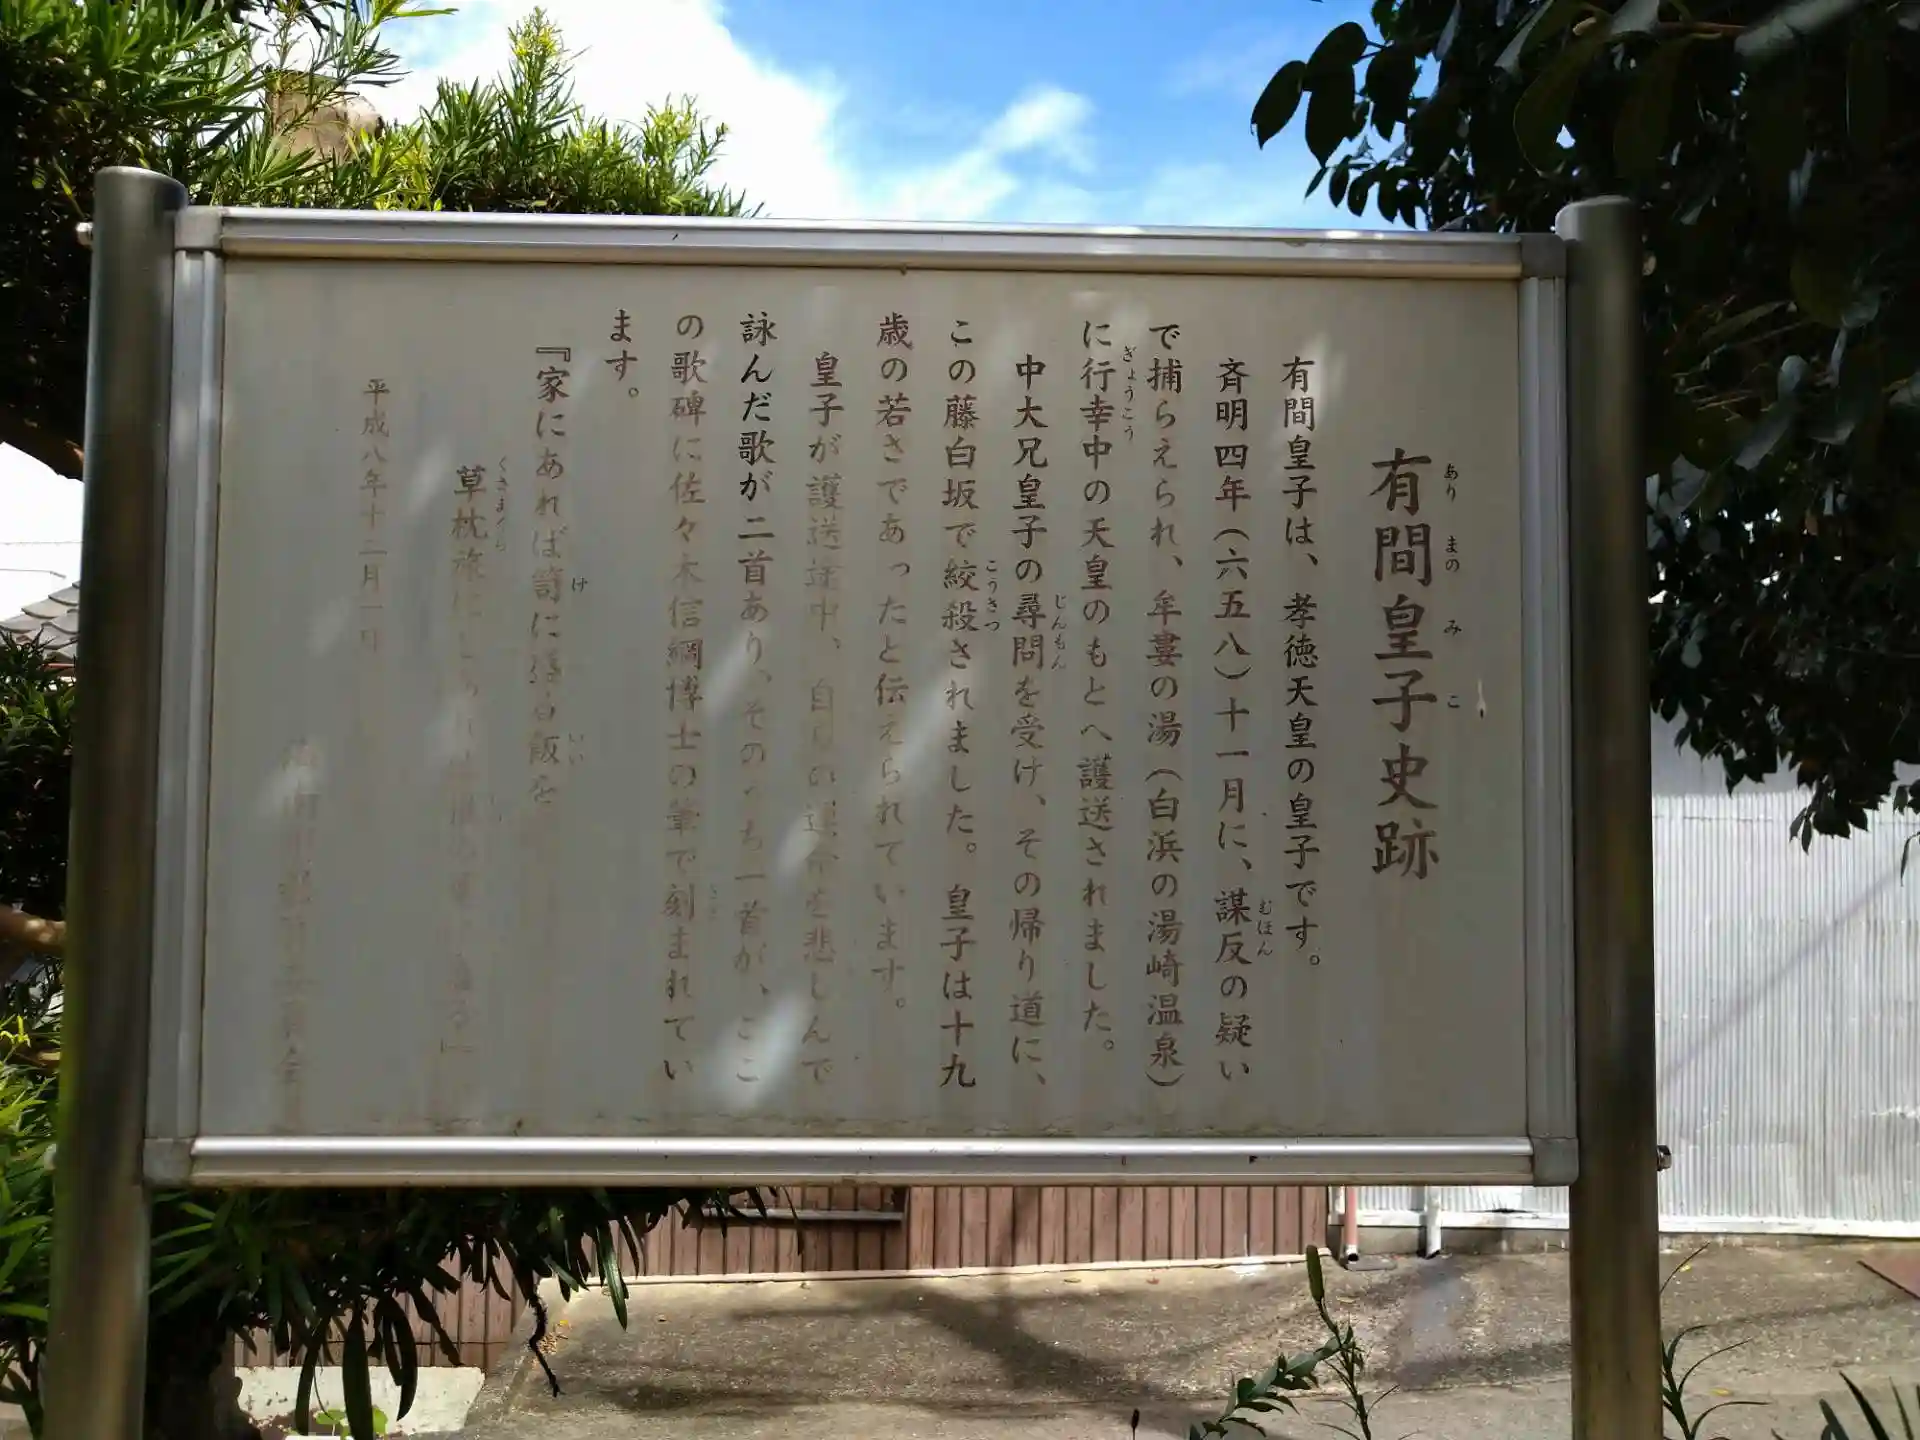 有間皇子史跡
あり まの み こ
有間皇子は、孝徳天皇の皇子です。
斉明四年（六五八）十一月に、謀反の疑い
むほん
で捕らえられ、牟婁の湯（白浜の湯崎温泉）
に行幸中の天皇のもとへ護送されました。
ぎょうこう
中大兄皇子の尋問を受け、その帰り道に、
じんもん
この藤白坂で絞殺されました。皇子は十九
こうさつ
歳の若さであったと伝えられています。
皇子が護送途中、自らの運命を悲しんで
詠んだ歌が二首あり、そのうち一首が、ここ
の歌碑に佐々木信綱博士の筆で刻まれてい
ます。
『家にあれば笥に盛る飯を
け いい
草枕旅にし
くさまくら
る』
平成八年十二月一日